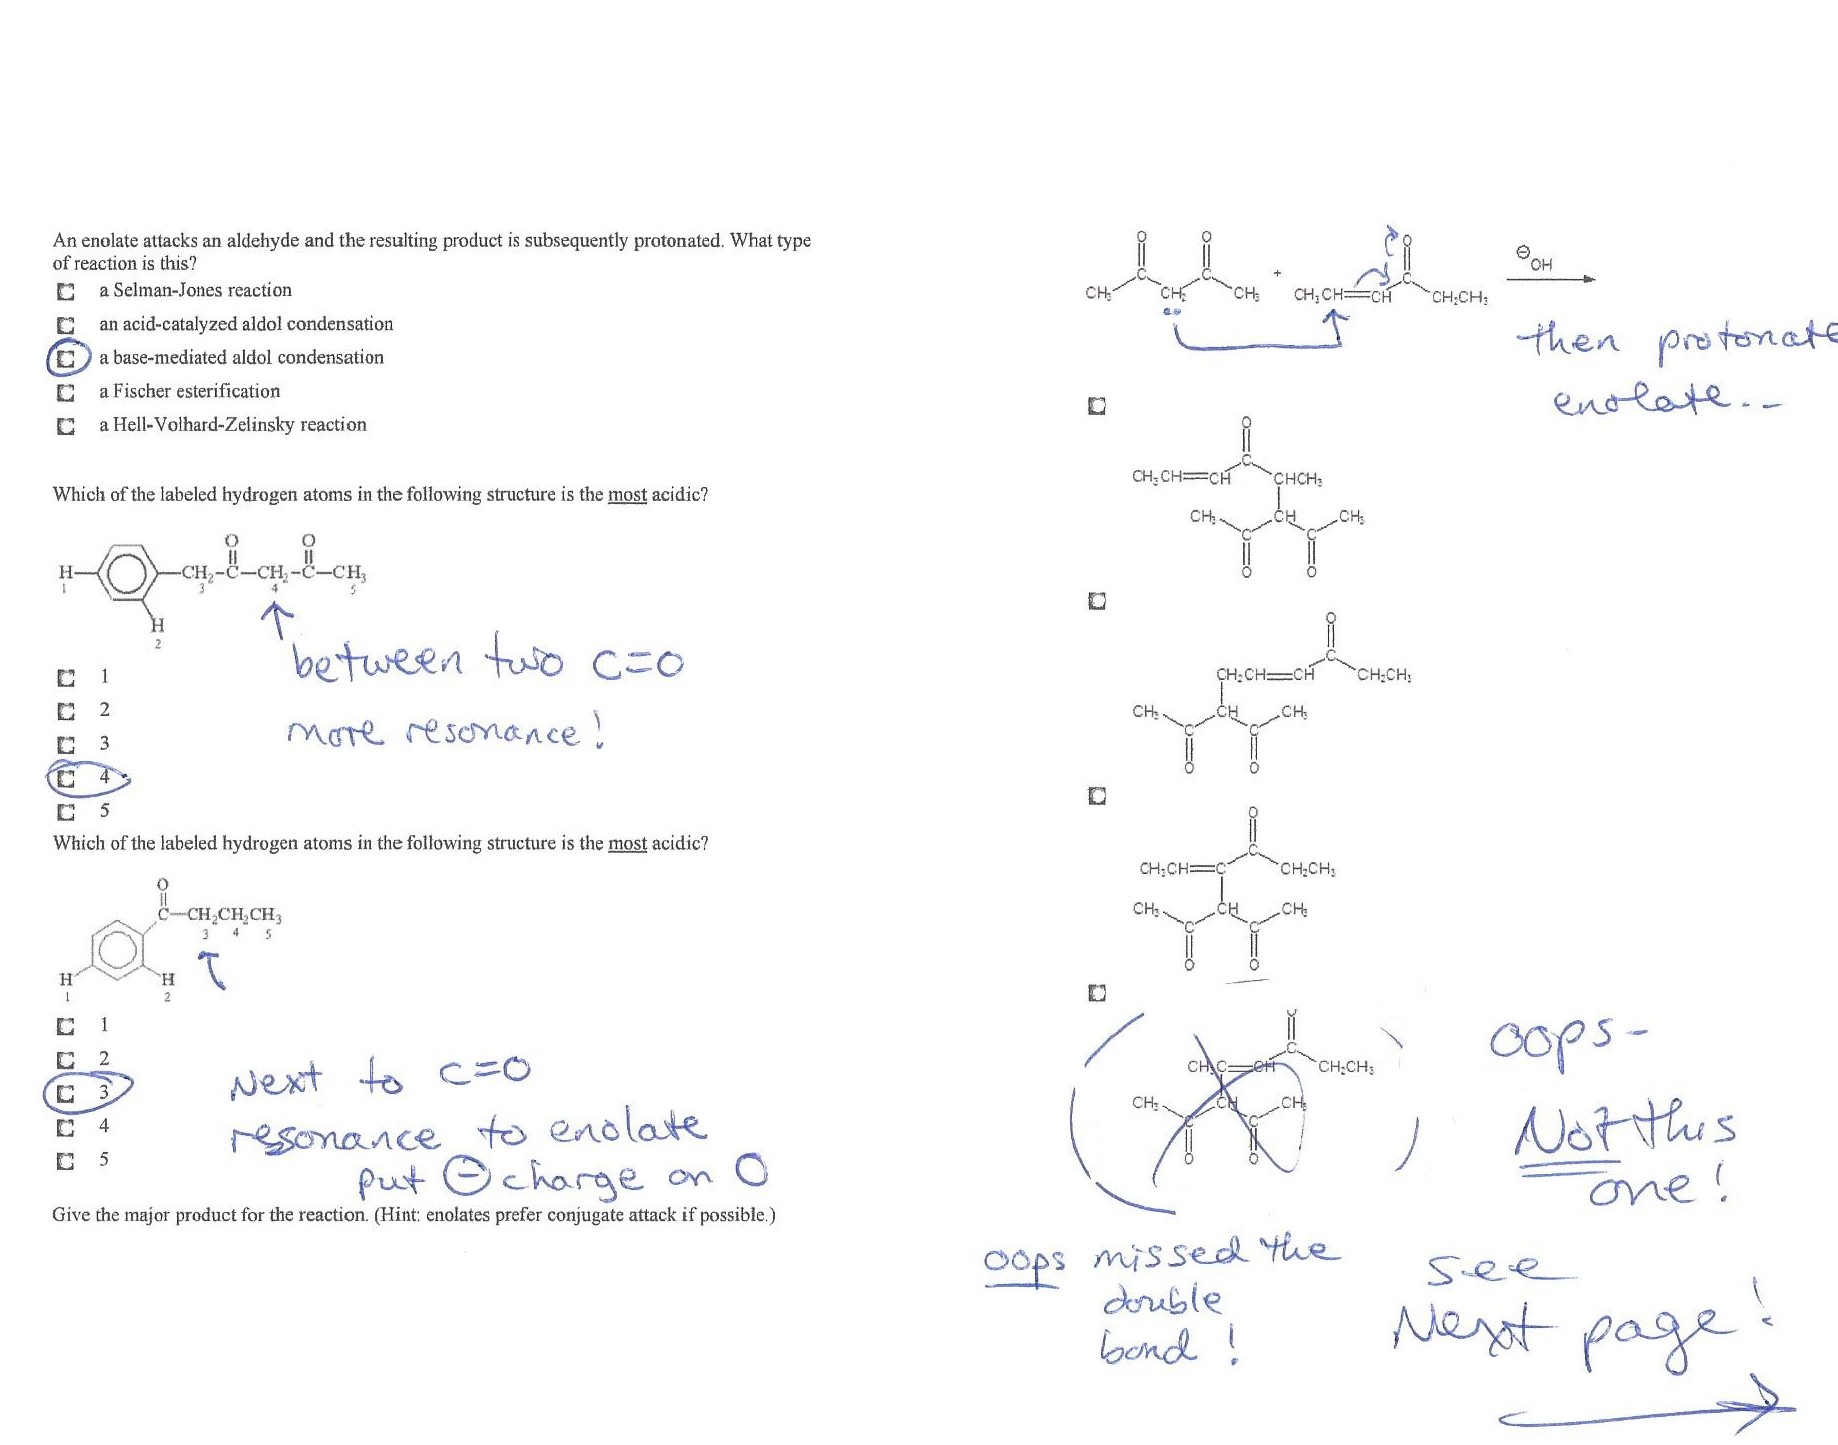 An enolate attacks an aldehyde and the resulting product is subsequently protonated. What type
of reaction is this?
a Selman-Jones reaction
an acid-catalyzed aldol condensation
a base-mediated aldol condensation
a Fischer esterification
a Hell-Volhard-Zelinsky reaction
Which of the labeled hydrogen atoms in the following structure is the most acidic?
O O
H CH₂-C-CH₂-C-CH₃
1 3 4 5
H
2
between two C=O
more resonance!
1
2
3
4
5
Which of the labeled hydrogen atoms in the following structure is the most acidic?
O
C-CH₂CH₂CH₃
3 4 5
H H
1 2
1
2
3
4
5
Next to C=O
resonance to enolate
put ⊖ charge on O
Give the major product for the reaction. (Hint: enolates prefer conjugate attack if possible.)
O O O
C C + C ⊖OH
CH₃ CH₂ CH₃ CH₃CH=CH CH₂CH₃
then protonate
enolate..
O
C
CH₃CH=CH CHCH₃
CH₃ CH CH₃
C C
O O
O
C
CH₂CH=CH CH₂CH₃
CH₃ CH CH₃
C C
O O
O
C
CH₃CH=C CH₂CH₃
CH₃ CH CH₃
C C
O O
O
C
CH₃C=CH CH₂CH₃
CH₃ CH CH₃
C C
O O
oops-
Not this
one!
oops missed the
double
bond!
see
Next page!